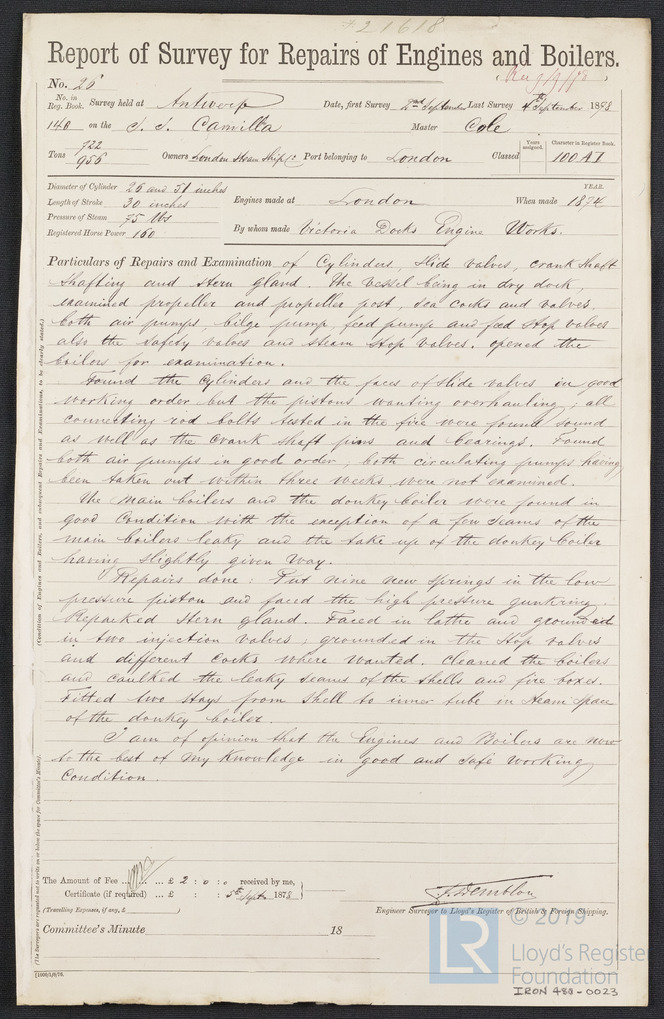 #21618
Report of Survey for Repairs of Engines and Boilers.
No. 25
(Rec 9/9/78)
No. in Reg. Book. Survey held at Antwerp Date, first Survey 2nd September Last Survey 4th September 1878
140 on the S. S. Camilla Master Cole
Tons 722 / 956 Owners London Steam Ship Co Port belonging to London Classed Years assigned. Character in Register Book. 100 A1
Diameter of Cylinder 26 and 51 inches
Length of Stroke 30 inches
Pressure of Steam 75 lbs
Registered Horse Power 160
Engines made at London When made YEAR. 1874
By whom made Victoria Docks Engine Works.
Particulars of Repairs and Examination of Cylinders, Slide valves, crank shaft
shafting and stern gland. The vessel being in dry dock,
examined propeller and propeller post, sea cocks and valves,
both air pumps, bilge pump, feed pump and feed stop valves
also the safety valves and steam stop valves. opened the
boilers for examination.
Found the Cylinders and the faces of slide valves in good
working order but the pistons wanting overhauling; all
connecting rod bolts tested in the fire were found sound
as well as the crank shaft pins and bearings. Found
both air pumps in good order, both circulating pumps having
been taken out within three weeks were not examined.
The main boilers and the donkey boiler were found in
good condition with the exception of a few seams of the
main boilers leaky and the take up of the donkey boiler
having slightly given way.
Repairs done: Put nine new springs in the low
pressure piston and faced the high pressure
Repacked stern gland. Faced in lathe and grounded
in two injection valves; grounded in the stop valves
and different cocks where wanted. Cleaned the boilers
and caulked the leaky seams of the shells and fire boxes.
Fitted two stays from shell to inner tube in steam space
of the donkey boiler.
I am of opinion that the Engines and Boilers are now
to the best of my knowledge in good and safe working
Condition.
(Condition of Engines and Boilers, and subsequent Repairs and Examinations, to be clearly stated.)
(The Surveyors are requested not to write on or below the space for Committee's Minute).
The Amount of Fee ... £ 2 : 0 : 0 received by me,
Certificate (if required) ... £ : : 5th Sept. 1878
(Travelling Expenses, if any, £ )
J. Demblon
Engineer Surveyor to Lloyd's Register of British & Foreign Shipping.
Committee's Minute 18
© 2019
LR
Lloyd's Register
Foundation
IRON 480-0023